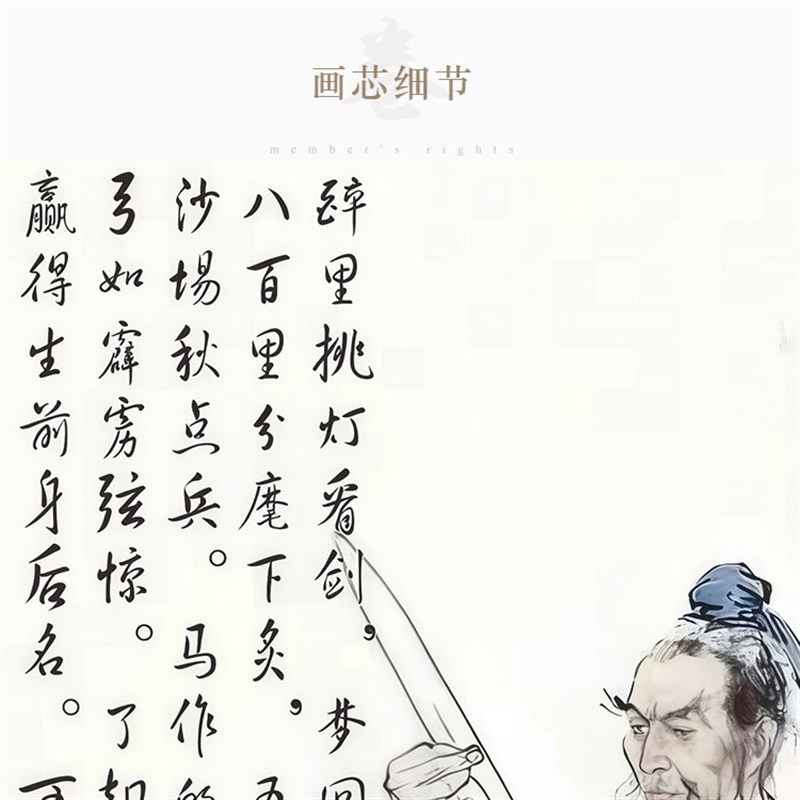 画芯细节
member's rights
醉里挑灯看剑，梦回
八百里分麾下炙，五
沙場秋点兵。马作的
弓如霹雳弦惊。了却
赢得生前身后名。可